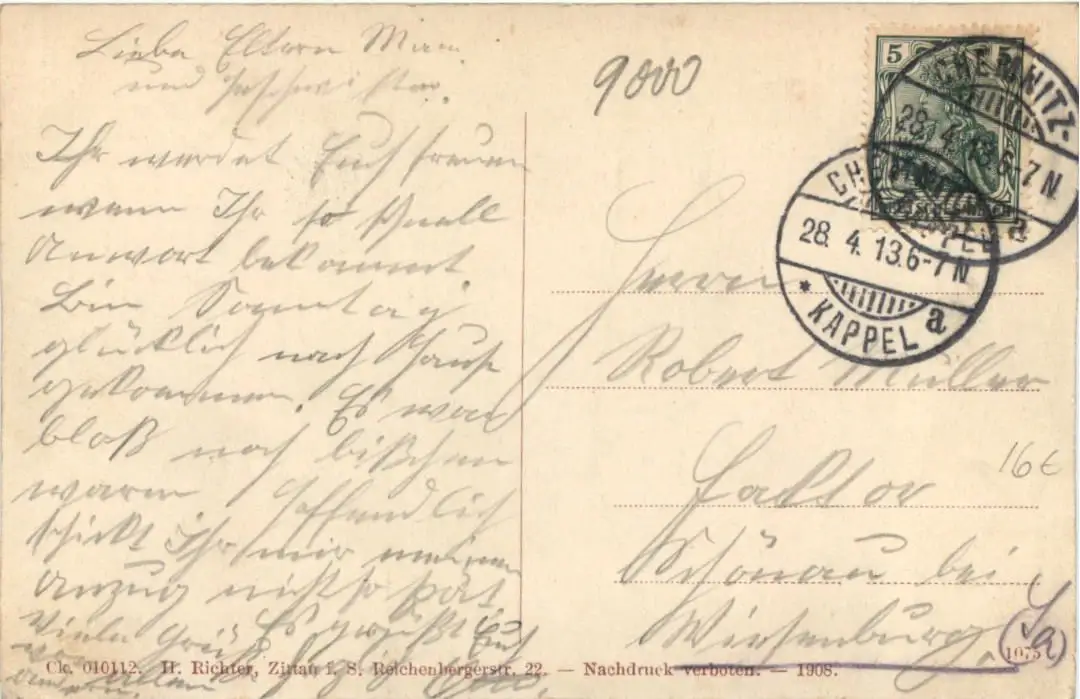 Liebe Eltern
und Geschwister.
Ihr werdet Euch freuen
wenn Ihr so schnell
Antwort bekommt
Bin Sonntag
glücklich nach Hause
gekommen. Es war
bloß noch bißchen
warm Hoffendlich
schickt Ihr mir meinen
Anzug nicht so spät
Viele Grüße Es grüßt Euch
9000
5 5
CHEMNITZ-
28. 4. 13. 6-7 N.
KAPPEL a
CHEMNITZ
28. 4. 13. 6-7 N.
* KAPPEL a
Herrn
Robert Müller
Faktor
16 €
Schönau bei
Wiesenburg
Sa
1075
Ck. 010112. H. Richter, Zittau i. S. Reichenbergerstr. 22. — Nachdruck verboten. — 1908.